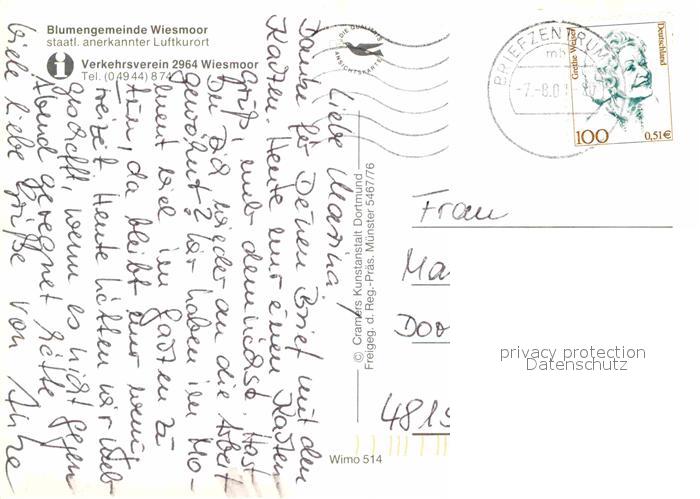 Blumengemeinde Wiesmoor
staatl. anerkannter Luftkurort
Verkehrsverein 2964 Wiesmoor
Tel. (04944) 874
DIE QUALITÄTS
ANSICHTSKARTE
Liebe Marina,
Danke für Deinen Brief mit den
Karten. Heute nur einen Karten
gruß, und demnächst. Hast
Du Dich wieder an die Arbeit
gewöhnt? Wir haben im Mo-
ment viel im Garten zu
tun, da bleibt nur wenig
Freizeit. Heute hätten wir
geschafft, wenn es nicht gegen
Abend geregnet hätte.
Viele liebe Grüße von Anke
© Cramers Kunstanstalt Dortmund
Freigeg. d. Reg.-Präs. Münster 5467/76
Wimo 514
BRIEFZENTRUM
Grethe Weiser
Deutschland
100 0,51€
Frau
Ma
Doo
4815
privacy protection
Datenschutz